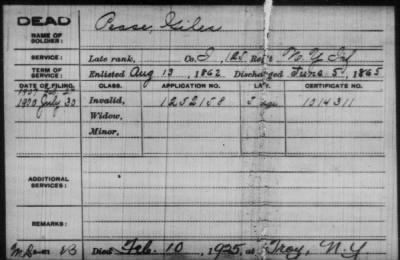 DEAD
NAME OF SOLDIER:
Pease, Giles
SERVICE:
Late rank, Co. I, 125 Reg't N. Y. Inf
TERM OF SERVICE:
Enlisted Aug 13, 1862 Discharged June 5, 1865
DATE OF FILING. CLASS. APPLICATION NO. LAW. CERTIFICATE NO.
1900 July 30 Invalid, 1252158 1014311
Widow,
Minor,
ADDITIONAL SERVICES:
REMARKS:
Died Feb. 10, 1925, at Troy, N.Y.